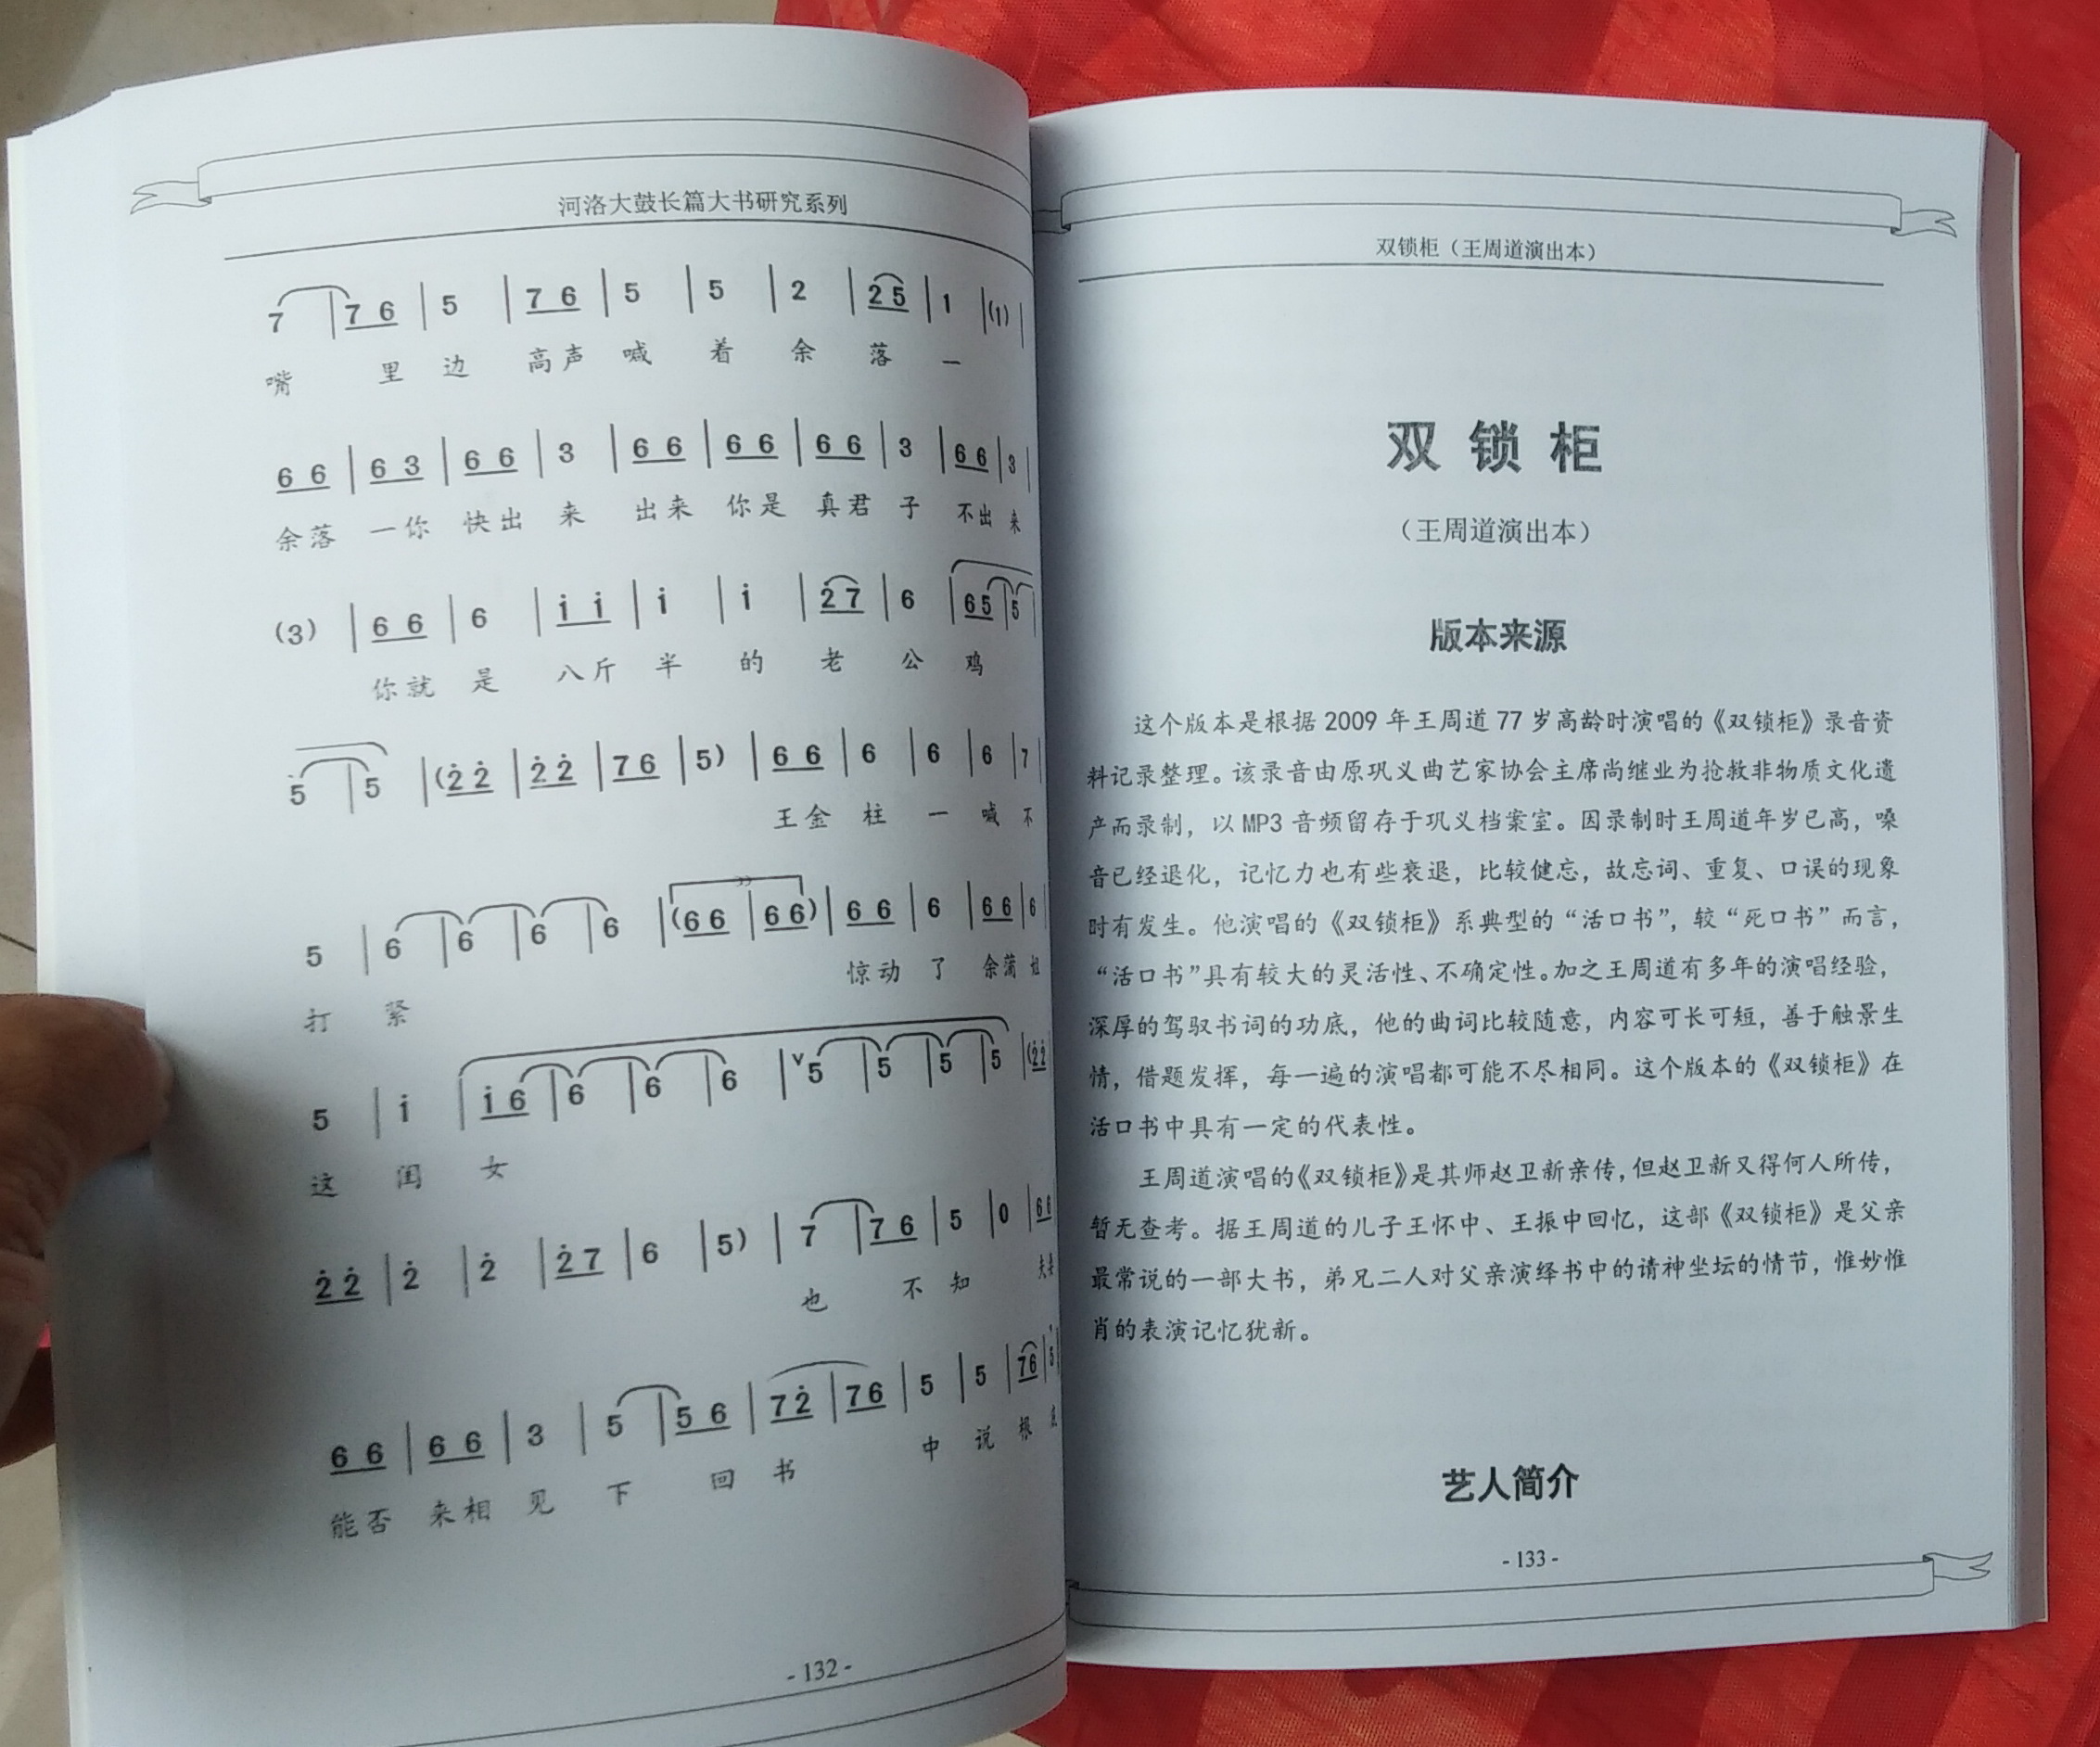 河洛大鼓长篇大书研究系列
7 | 7 6 | 5 | 7 6 | 5 | 5 | 2 | 2 5 | 1 | (1) |
嘴 里 边 高声 喊 着 余 落 一
6 6 | 6 3 | 6 6 | 3 | 6 6 | 6 6 | 6 6 | 3 | 6 6 | 3 |
余落 一你 快出 来 出来 你是 真君 子 不出 来
(3) | 6 6 | 6 | i i | i | i | 2̇ 7 | 6 | 6 5 | 5
你就 是 八斤 半 的 老 公 鸡
5 | 5 | (2̇ 2̇ | 2̇ 2̇ | 7 6 | 5) | 6 6 | 6 | 6 | 6 | 7 |
王金 柱 一 喊 不
5 | 6 | 6 | 6 | 6 | (6 6 | 6 6) | 6 6 | 6 | 6 6 | 6 |
打 紧 惊动 了 余蒲 姐
5 | i | i 6 | 6 | 6 | 6 | ∨5 | 5 | 5 | 5 | (2̇ 2̇
这 闺 女
2̇ 2̇ | 2̇ | 2̇ | 2̇ 7 | 6 | 5) | 7 | 7 6 | 5 | 0 | 6 6
也 不 知 夫妻
6 6 | 6 6 | 3 | 5 | 5 6 | 7 2̇ | 7 6 | 5 | 5 | 7 6 | 5
能否 来相 见 下 回 书 中 说 根
- 132 -
双锁柜（王周道演出本）
双锁柜
（王周道演出本）
版本来源
这个版本是根据 2009 年王周道 77 岁高龄时演唱的《双锁柜》录音资
料记录整理。该录音由原巩义曲艺家协会主席尚继业为抢救非物质文化遗
产而录制，以 MP3 音频留存于巩义档案室。因录制时王周道年岁已高，嗓
音已经退化，记忆力也有些衰退，比较健忘，故忘词、重复、口误的现象
时有发生。他演唱的《双锁柜》系典型的“活口书”，较“死口书”而言，
“活口书”具有较大的灵活性、不确定性。加之王周道有多年的演唱经验，
深厚的驾驭书词的功底，他的曲词比较随意，内容可长可短，善于触景生
情，借题发挥，每一遍的演唱都可能不尽相同。这个版本的《双锁柜》在
活口书中具有一定的代表性。
王周道演唱的《双锁柜》是其师赵卫新亲传，但赵卫新又得何人所传，
暂无查考。据王周道的儿子王怀中、王振中回忆，这部《双锁柜》是父亲
最常说的一部大书，弟兄二人对父亲演绎书中的请神坐坛的情节，惟妙惟
肖的表演记忆犹新。
艺人简介
- 133 -